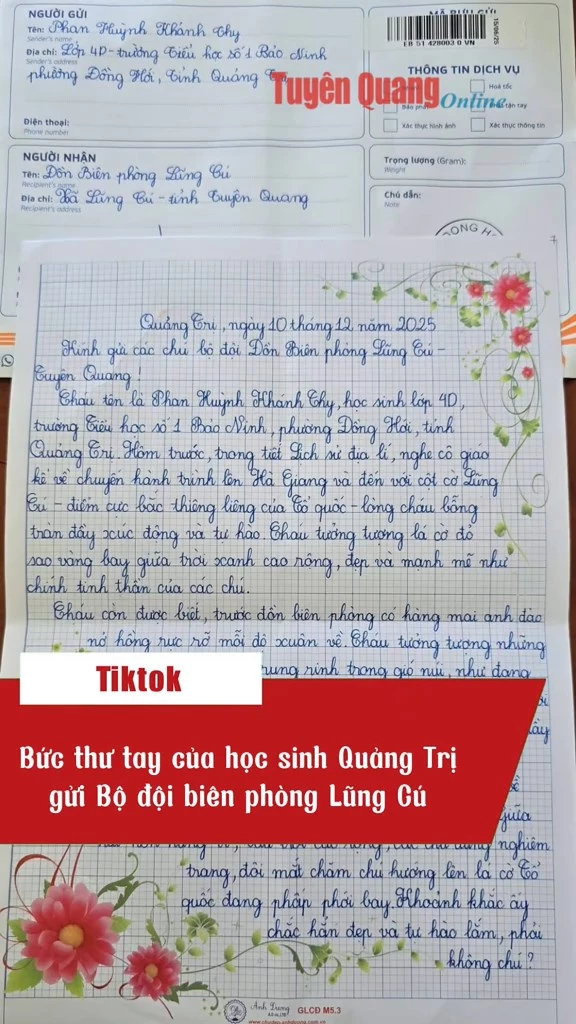 NGƯỜI GỬI
Tên: Phan Huỳnh Khánh Thy
Sender's name
Địa chỉ: Lớp 4D - trường Tiểu học số 1 Bảo Ninh
Sender's address
phường Đồng Hới, Tỉnh Quảng
Điện thoại:
Phone number
MÃ BƯU GỬI
EB 51 428003 0 VN
10/06/25
Tuyên Quang Online
THÔNG TIN DỊCH VỤ
Hoả tốc
tận tay
Xác thực hình ảnh
Xác thực thông tin
NGƯỜI NHẬN
Tên: Đồn Biên phòng Lũng Cú
Recipient's name
Địa chỉ: Xã Lũng Cú - tỉnh Tuyên Quang
Recipient's address
Trọng lượng (Gram):
Weight
Chú dẫn:
Note
7
Quảng Trị, ngày 10 tháng 12 năm 2025
Kính gửi các chú bộ đội Đồn Biên phòng Lũng Cú -
Tuyên Quang!
Cháu tên là Phan Huỳnh Khánh Thy, học sinh lớp 4D,
trường Tiểu học số 1 Bảo Ninh, phường Đồng Hới, tỉnh
Quảng Trị. Hôm trước, trong tiết Lịch sử địa lí, nghe cô giáo
kể về chuyến hành trình lên Hà Giang và đến với cột cờ Lũng
Cú - điểm cực bắc thiêng liêng của Tổ quốc - lòng cháu bỗng
tràn đầy xúc động và tự hào. Cháu tưởng tượng lá cờ đỏ
sao vàng bay giữa trời xanh cao rộng, đẹp và mạnh mẽ như
chính tinh thần của các chú.
Cháu còn được biết, trước đồn biên phòng có hàng mai anh đào
nở hồng rực rỡ mỗi độ xuân về. Cháu tưởng tượng những
rung rinh trong gió núi, như đang
Tiktok
Bức thư tay của học sinh Quảng Trị
gửi Bộ đội biên phòng Lũng Cú
giữa
nghiêm
trang, đôi mắt chăm chú hướng lên lá cờ Tổ
quốc đang phấp phới bay. Khoảnh khắc ấy
chắc hẳn đẹp và tự hào lắm, phải
không chú?
Ánh Dương
GLCĐ M5.3